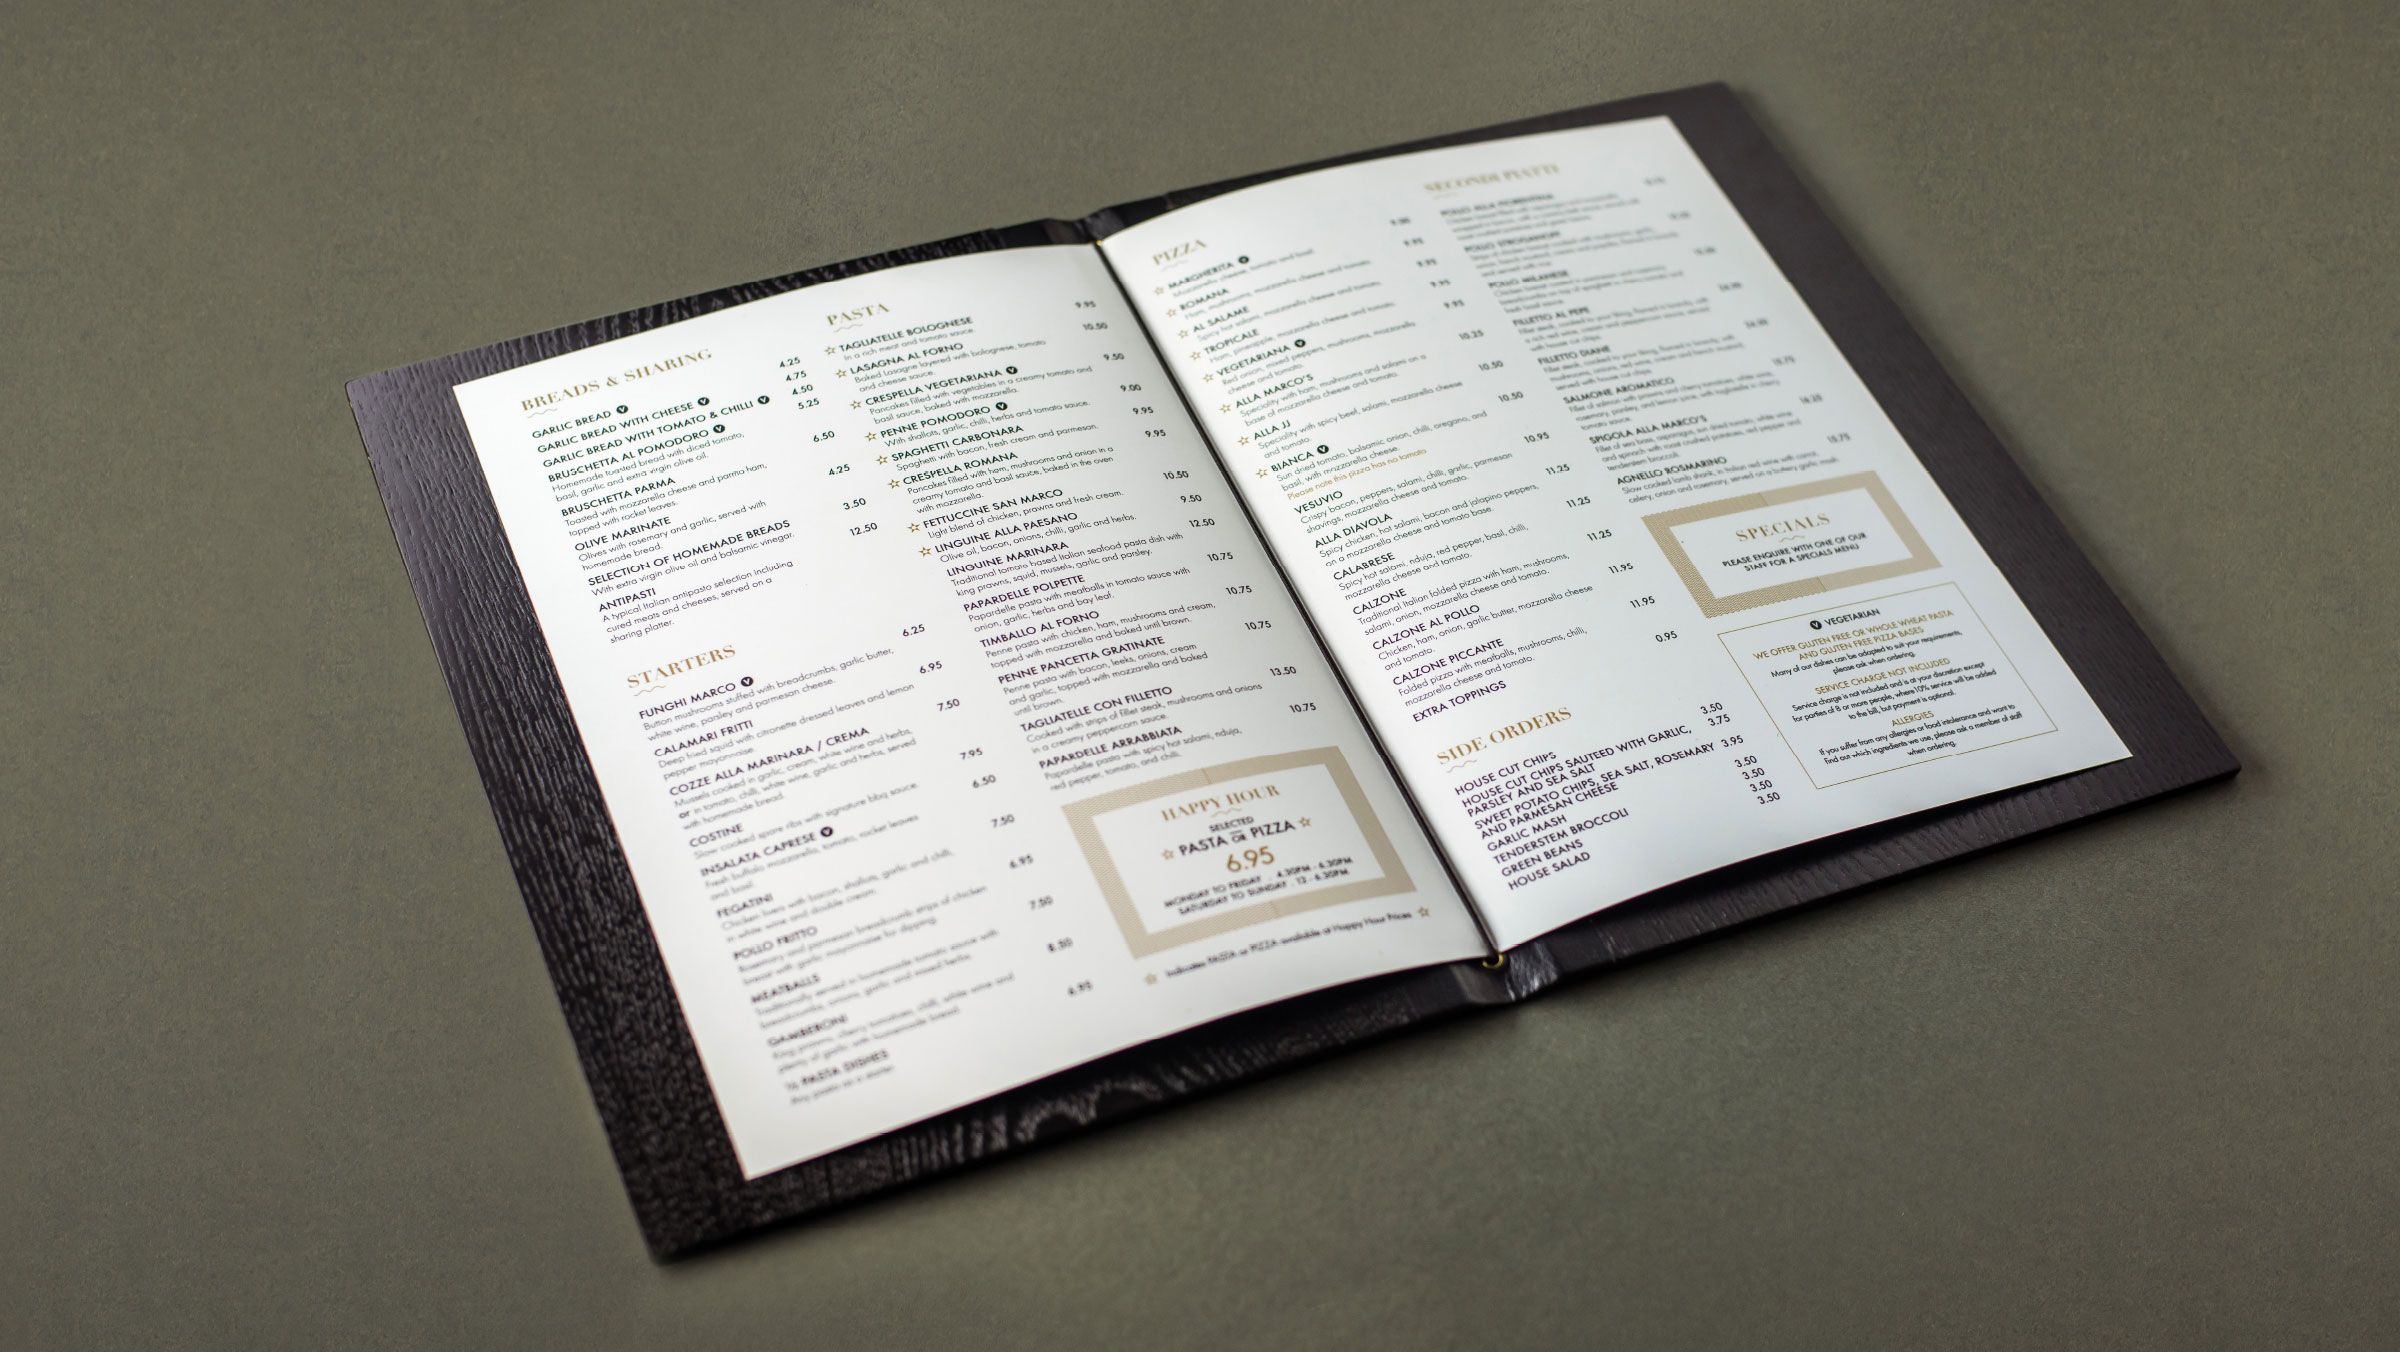 BREADS & SHARING
GARLIC BREAD V 4.25
GARLIC BREAD WITH CHEESE V 4.75
GARLIC BREAD WITH TOMATO & CHILLI V 4.50
BRUSCHETTA AL POMODORO V 5.25
Homemade toasted bread with diced tomato,
basil, garlic and extra virgin olive oil.
BRUSCHETTA PARMA 6.50
Toasted with mozzarella cheese and parma ham,
topped with rocket leaves.
OLIVE MARINATE 4.25
Olives with rosemary and garlic, served with
homemade bread.
SELECTION OF HOMEMADE BREADS 3.50
With extra virgin olive oil and balsamic vinegar.
ANTIPASTI 12.50
A typical Italian antipasto selection including
cured meats and cheeses, served on a
sharing platter.
STARTERS
FUNGHI MARCO V 6.25
Button mushrooms stuffed with breadcrumbs, garlic butter,
white wine, parsley and parmesan cheese.
CALAMARI FRITTI 6.95
Deep fried squid with citronette dressed leaves and lemon
pepper mayonnaise.
COZZE ALLA MARINARA / CREMA 7.50
Mussels cooked in garlic, cream, white wine and herbs,
or in tomato, chilli, white wine, garlic and herbs, served
with homemade bread.
COSTINE 7.95
Slow cooked spare ribs with signature bbq sauce.
INSALATA CAPRESE V 6.50
Fresh buffalo mozzarella, tomato, rocket leaves
and basil.
FEGATINI 7.50
Chicken livers with bacon, shallots, garlic and chilli,
in white wine and double cream.
POLLO FRITTO 6.95
Rosemary and parmesan breadcrumb strips of chicken
breast with garlic mayonnaise for dipping.
MEATBALLS 7.50
Traditionally served in homemade tomato sauce with
breadcrumbs, onions, garlic and mixed herbs.
GAMBERONI 8.50
King prawns, cherry tomatoes, chilli, white wine and
plenty of garlic with homemade bread.
16 PASTA DISHES 6.95
Any pasta as a starter.
PASTA
☆ TAGLIATELLE BOLOGNESE 9.95
In a rich meat and tomato sauce.
☆ LASAGNA AL FORNO 10.50
Baked Lasagne layered with bolognese, tomato
and cheese sauce.
☆ CRESPELLA VEGETARIANA V 9.50
Pancakes filled with vegetables in a creamy tomato and
basil sauce, baked with mozzarella.
☆ PENNE POMODORO V 9.00
With shallots, garlic, chilli, herbs and tomato sauce.
☆ SPAGHETTI CARBONARA 9.95
Spaghetti with bacon, fresh cream and parmesan.
☆ CRESPELLA ROMANA 9.95
Pancakes filled with ham, mushrooms and onion in a
creamy tomato and basil sauce, baked in the oven
with mozzarella.
☆ FETTUCCINE SAN MARCO 10.50
Light blend of chicken, prawns and fresh cream.
☆ LINGUINE ALLA PAESANO 9.50
Olive oil, bacon, onions, chilli, garlic and herbs.
LINGUINE MARINARA 12.50
Traditional tomato based Italian seafood pasta dish with
king prawns, squid, mussels, garlic and parsley.
PAPARDELLE POLPETTE 10.75
Papardelle pasta with meatballs in tomato sauce with
onion, garlic, herbs and bay leaf.
TIMBALLO AL FORNO 10.75
Penne pasta with chicken, ham, mushrooms and cream,
topped with mozzarella and baked until brown.
PENNE PANCETTA GRATINATE 10.75
Penne pasta with bacon, leeks, onions, cream
and garlic, topped with mozzarella and baked
until brown.
TAGLIATELLE CON FILLETTO 13.50
Cooked with strips of fillet steak, mushrooms and onions
in a creamy peppercorn sauce.
PAPARDELLE ARRABBIATA 10.75
Papardelle pasta with spicy hot salami, nduja,
red pepper, tomato, and chilli.
HAPPY HOUR
SELECTED
☆ PASTA OR PIZZA ☆
6.95
MONDAY TO FRIDAY . 4.30PM - 6.30PM
SATURDAY TO SUNDAY . 12 - 6.30PM
☆ Indicates PASTA or PIZZA available at Happy Hour Prices ☆
PIZZA
☆ MARGHERITA V 9.50
Mozzarella cheese, tomato and basil.
☆ ROMANA 9.95
Ham, mushrooms, mozzarella cheese and tomato.
☆ AL SALAME 9.95
Spicy hot salami, mozzarella cheese and tomato.
☆ TROPICALE 9.95
Ham, pineapple, mozzarella cheese and tomato.
☆ VEGETARIANA V 9.95
Red onion, mixed peppers, mushrooms, mozzarella
cheese and tomato.
☆ ALLA MARCO'S 10.25
Speciality with ham, mushrooms and salami on a
base of mozzarella cheese and tomato.
☆ ALLA JJ 10.50
Speciality with spicy beef, salami, mozzarella cheese
and tomato.
☆ BIANCA V 10.50
Sun dried tomato, balsamic onion, chilli, oregano, and
basil, with mozzarella cheese.
Please note this pizza has no tomato
VESUVIO 10.95
Crispy bacon, peppers, salami, chilli, garlic, parmesan
shavings, mozzarella cheese and tomato.
ALLA DIAVOLA 11.25
Spicy chicken, hot salami, bacon and jalapino peppers,
on a mozzarella cheese and tomato base.
CALABRESE 11.25
Spicy hot salami, nduja, red pepper, basil, chilli,
mozzarella cheese and tomato.
CALZONE 11.25
Traditional Italian folded pizza with ham, mushrooms,
salami, onion, mozzarella cheese and tomato.
CALZONE AL POLLO 11.95
Chicken, ham, onion, garlic butter, mozzarella cheese
and tomato.
CALZONE PICCANTE 11.95
Folded pizza with meatballs, mushrooms, chilli,
mozzarella cheese and tomato.
EXTRA TOPPINGS 0.95
SIDE ORDERS
HOUSE CUT CHIPS 3.50
HOUSE CUT CHIPS SAUTEED WITH GARLIC, 3.75
PARSLEY AND SEA SALT
SWEET POTATO CHIPS, SEA SALT, ROSEMARY 3.95
AND PARMESAN CHEESE
GARLIC MASH 3.50
TENDERSTEM BROCCOLI 3.50
GREEN BEANS 3.50
HOUSE SALAD 3.50
SECONDI PIATTI
POLLO ALLA FIORENTINA
POLLO STROGANOFF
POLLO MILANESE
FILLETTO AL PEPE
Fillet steak, cooked to your liking, flamed in brandy, with
a rich red wine, cream and peppercorn sauce, served
with house cut chips.
FILLETTO DIANE
Fillet steak, cooked to your liking, flamed in brandy, with
mushrooms, onions, red wine, cream and french mustard,
served with house cut chips.
SALMONE AROMATICO 15.75
Fillet of salmon with prawns and cherry tomatoes, white wine,
rosemary, parsley, and lemon juice, with tagliatelle in cherry
tomato sauce.
SPIGOLA ALLA MARCO'S
Fillet of sea bass, asparagus, sun dried tomato, white wine
and spinach with roast crushed potatoes, red pepper and
tenderstem broccoli.
AGNELLO ROSMARINO 15.75
Slow cooked lamb shank, in Italian red wine with carrot,
celery, onion and rosemary, served on a buttery garlic mash
SPECIALS
PLEASE ENQUIRE WITH ONE OF OUR
STAFF FOR A SPECIALS MENU
V VEGETARIAN
WE OFFER GLUTEN FREE OR WHOLE WHEAT PASTA
AND GLUTEN FREE PIZZA BASES
Many of our dishes can be adapted to suit your requirements,
please ask when ordering.
SERVICE CHARGE NOT INCLUDED
Service charge is not included and is at your discretion except
for parties of 8 or more people, where 10% service will be added
to the bill, but payment is optional.
ALLERGIES
If you suffer from any allergies or food intolerance and want to
find out which ingredients we use, please ask a member of staff
when ordering.